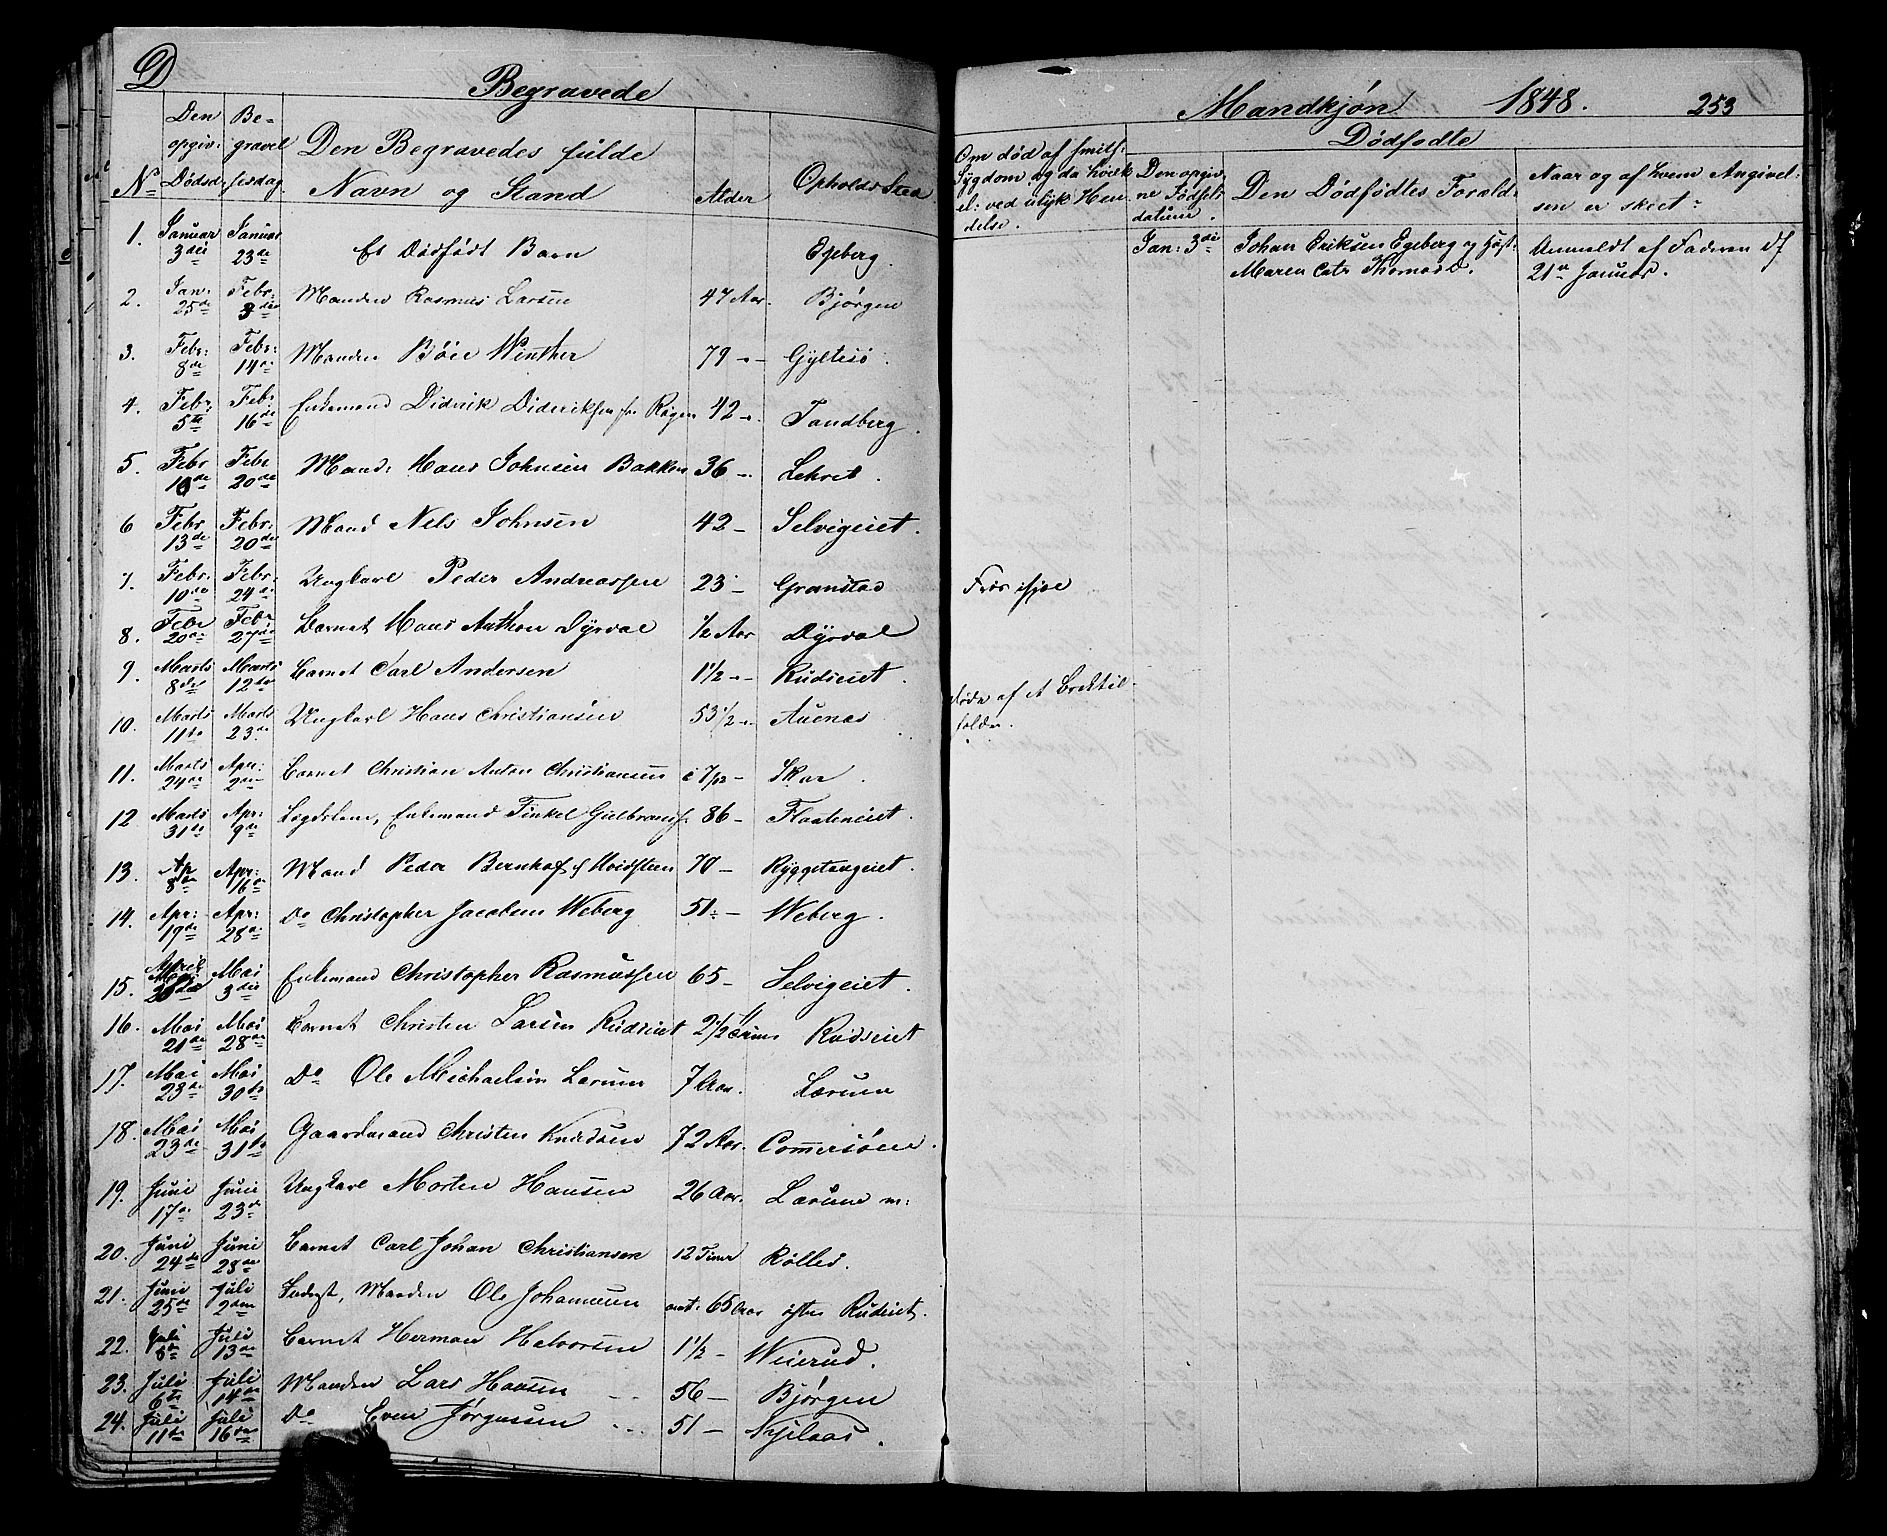 D Begravede
Mandkjøn 1848. 253
No
Den opgiv: Dødsd:
Begravelsesdag
Den Begravedes fulde Navn og Stand
Alder
Opholds Sted
Om død af smits: Sygdom, og da hvilk
Den opgivne Fødselsdatum.
Dødfødte
Den Dødfødtes Foræld:
Naar og af hvem Angivelsen er skeet:
1. Januar 3die Januar 23de Et Dødfødt Barn Egeberg. Jan: 3die Johan Eriksen Egeberg og Hust: Anmeldt af Faderen d
Maren Catr Thomasd. 21de Januar.
2. Jan: 25de Febr: Manden Rasmus Larsen 47 Aar. Bjørgen
3. Febr: 8de Febr: 14de Manden Böie Winther 79 -- Gyltesø
4. Febr: 5te Febr: 16de Enkemand Didrik Dideriksen Røgen 42 -- Tandberg.
5. Febr 10de Febr 20de Mand: Hans Johnsen Bakken 36 -- Lekret.
6 Febr 13de Febr: 20de Mand Nels Johnsen 42 - Selvigeiet.
7. Febr. 10de Febr. 24de Ungkarl Peder Andreassen 23 - Granstad
8. Febr 20de Febr 27de Barnet Hans Anthon Dyrdal 1/2 Aar Dyrdal
9. Marts 8de Marts 12te Barnet Carl Andersen 1 1/2 -- Rudseiet.
10. Marts 11te Marts 23de Ungkarl Hans Christiansen 53 1/2 -- Auenas
11. Marts 24de Apr: 2den Barnet Christian Anton Christiansen 7/12 - Skar.
12 Marts 31te Apr: 9de Lægdslem, Enkemand Finkel Gulbrands: 86 - Flaateneiet.
13. Ap 8de Apr: 16de Mand Peder Bernhof 70 - Ryggetangeiet.
14. Apr: 19de Apr: 28de Do Christopher Jacobsen Weberg 51 - Weberg.
15. April Mai 3die Enkemand Christopher Rasmussen 65 - Selvigeiet.
16. Mai 21de Mai 28de Barnet Christen Larsen Rudseiet 2 1/2 Rudseiet
17. Mai 23de Mai 30te Do Ole Michaelsen Lørum 7 Aar. Lørum
18. Mai 23de Mai 31te Gaardmand Christen Knudsen 72 Aar. Commersöen.
19. Juni 17de Juni 23de Ungkarl Morten Hansen 26 Aar. Lørum m:
20. Juni 24de Juni 28de Barnet Carl Johan Christiansen 12 Timer Rølled.
21. Juni 25de Juli 2den Inderst, Manden Ole Johannesen omt: 65 Aar østre Rudeiet.
22. Juli Juli 13de Barnet Herman Halvorsen 1 1/2 - Weierud.
23. Juli 6te Juli 14de Manden Lars Hansen 56 - Bjørgen
24. Juli 11te Juli 16de Do Even Jørgensen 51 - Nyelaas.